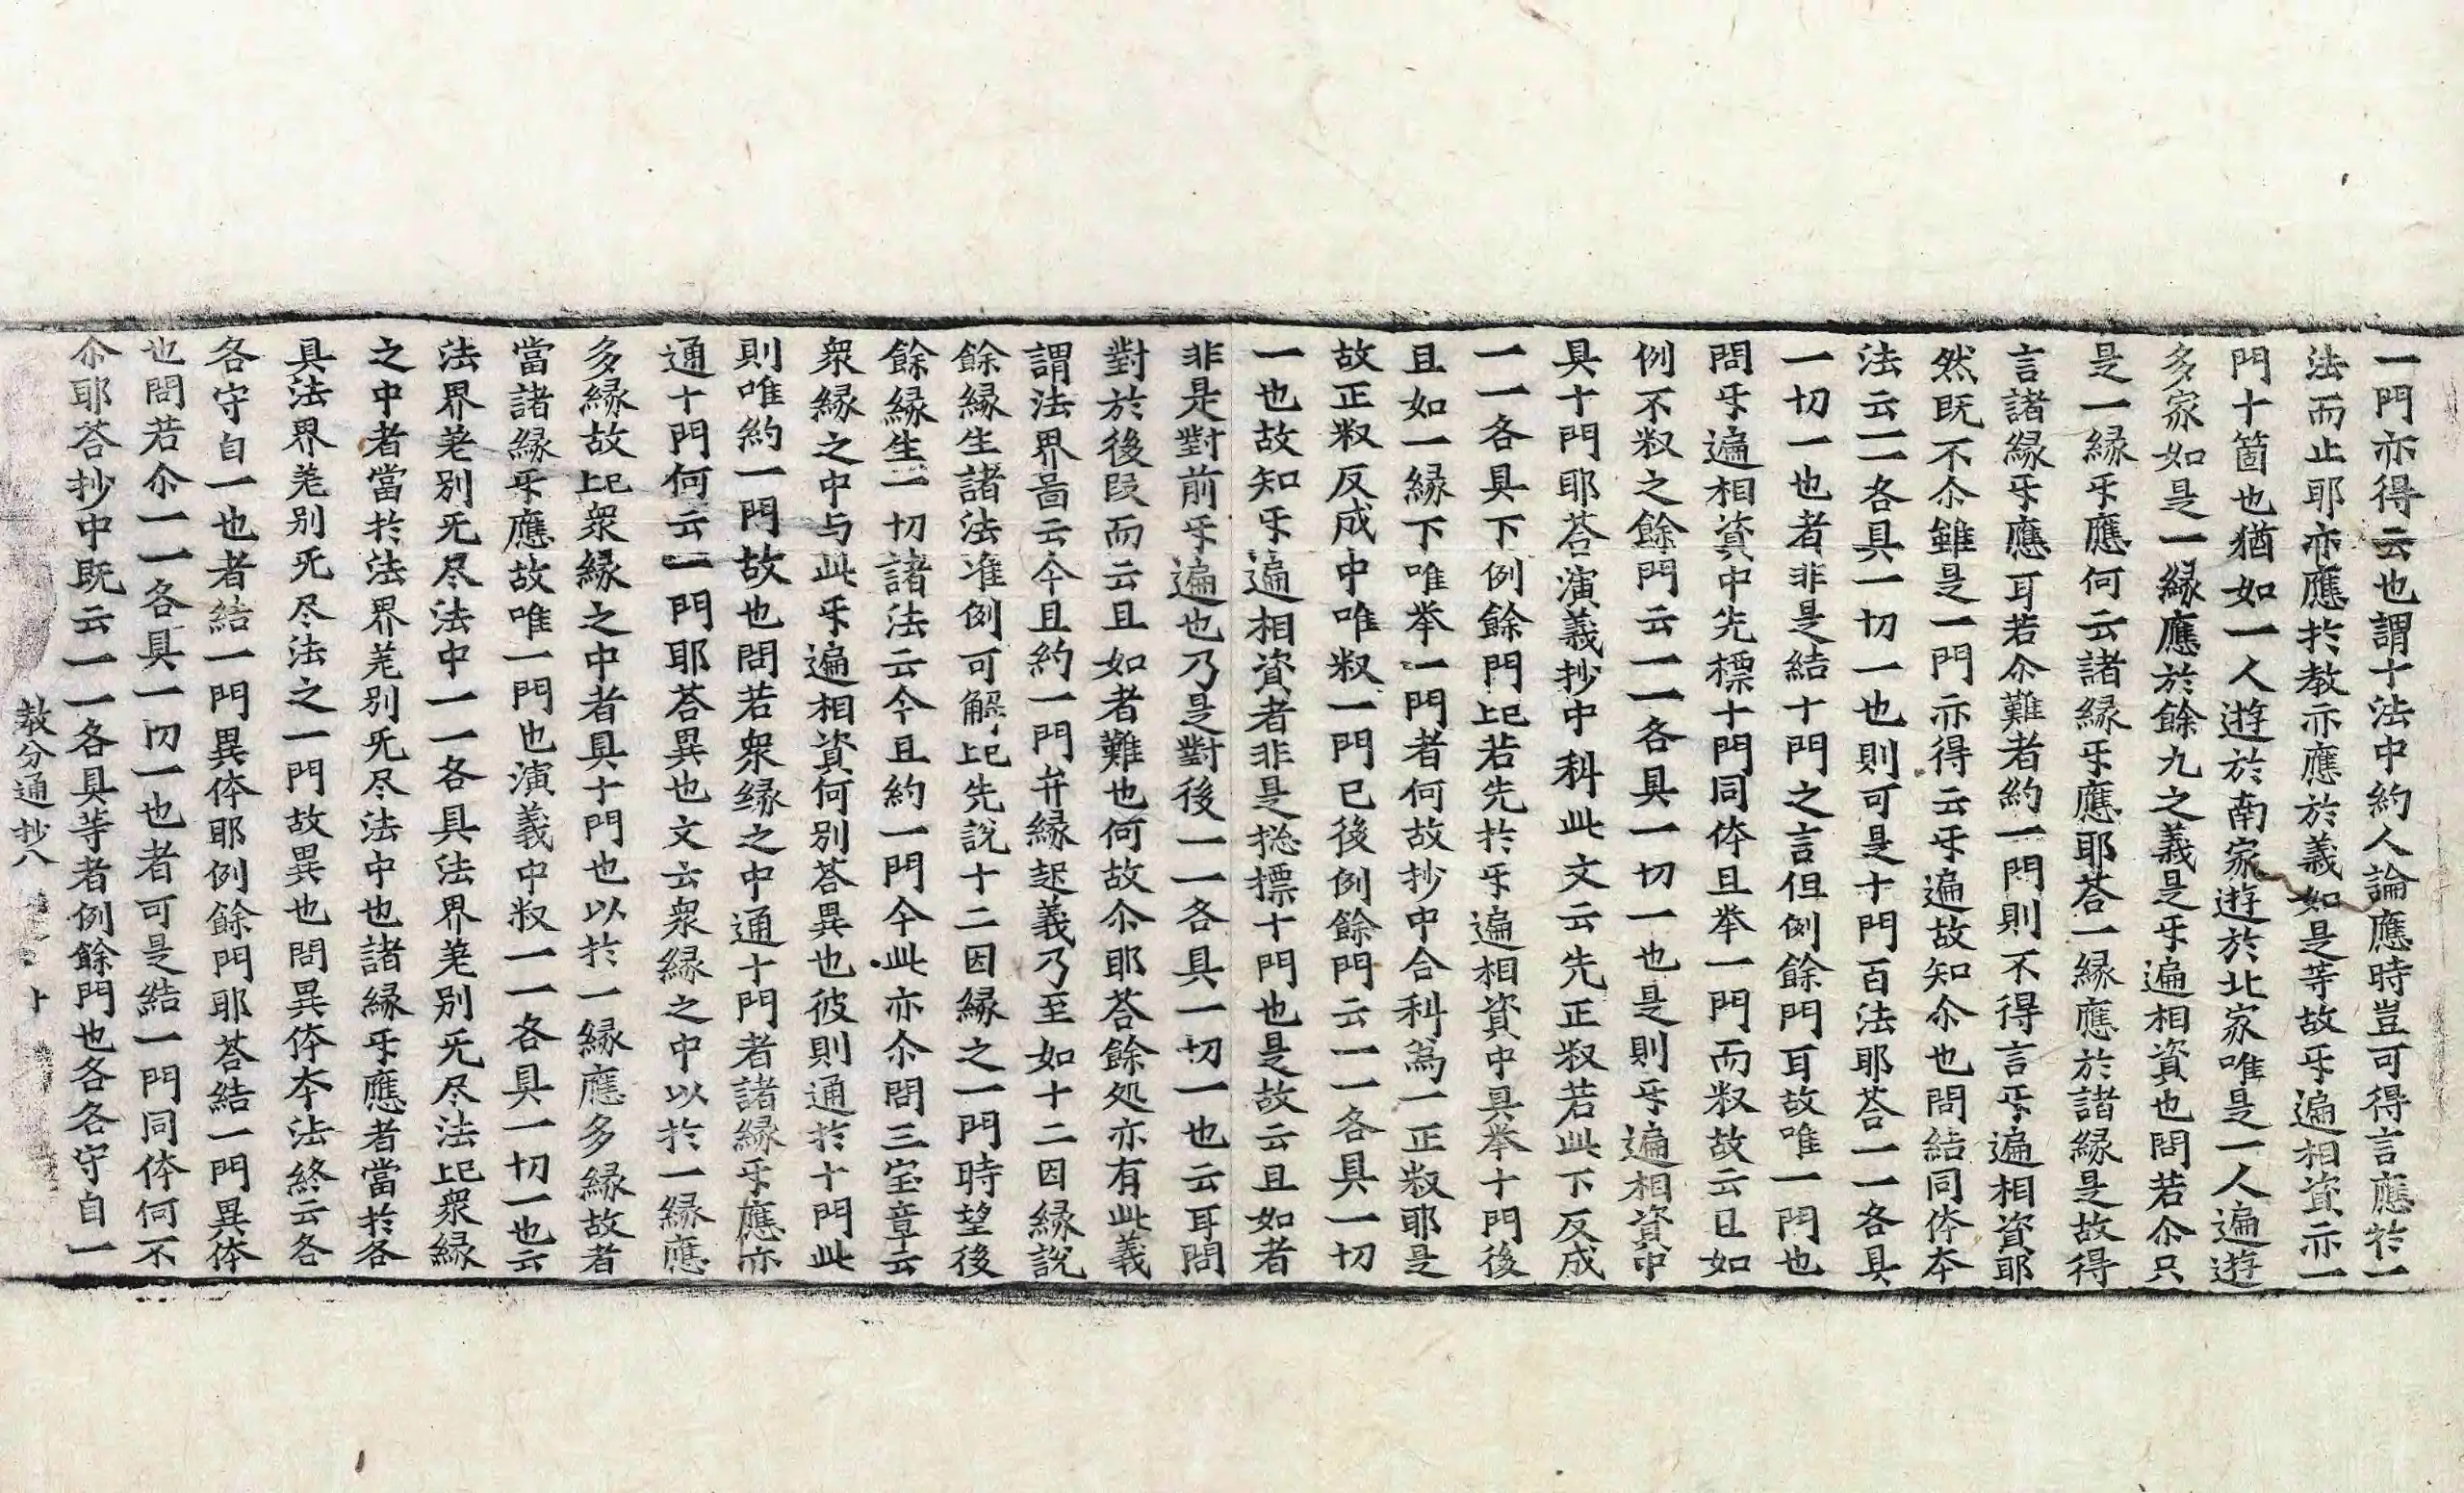 一門亦得云也謂十法中約人論應時豈可得言應扵一
法而止耶亦應扵教亦應於義如是等故㸦遍相資亦一
門十箇也猶如一人遊於南家遊於北家唯是一人遍遊
多家如是一縁應於餘九之義是㸦遍相資也問若尒只
是一縁㸦應何云諸縁㸦應耶荅一縁應於諸縁是故得
言諸縁㸦應耳若尒難者約一門則不得言㸦遍相資耶
然既不尒雖是一門亦得云㸦遍故知尒也問結同体夲
法云一一各具一切一也則可是十門百法耶荅一一各具
一切一也者非是結十門之言但例餘門耳故唯一門也
問㸦遍相資中先標十門同体且举一門而㪽故云且如
例不㪽之餘門云一一各具一切一也是則㸦遍相資中
具十門耶荅演義抄中科此文云先正㪽若此下反成
一一各具下例餘門上已若先扵㸦遍相資中具举十門後
且如一縁下唯举一門者何故抄中合科為一正㪽耶是
故正㪽反成中唯㪽一門已後例餘門云一一各具一切
一也故知㸦遍相資者非是捴標十門也是故云且如者
非是對前㸦遍也乃是對後一一各具一切一也云耳問
對於後段而云且如者難也何故尒耶荅餘処亦有此義
謂法界啚云今且約一門并縁起義乃至如十二因縁說
餘縁生諸法准例可解上已先說十二因縁之一門時望後
餘縁生一切諸法云今且約一門今此亦尒問三宝章云
衆縁之中与此㸦遍相資何別荅異也彼則通扵十門此
則唯約一門故也問若衆縁之中通十門者諸縁㸦應亦
通十門何云一門耶荅異也文云衆縁之中以扵一縁應
多縁故上已衆縁之中者具十門也以扵一縁應多縁故者
當諸縁㸦應故唯一門也演義中㪽一一各具一切一也云
法界差別无尽法中一一各具法界差別无尽法上已衆縁
之中者當扵法界差別无尽法中也諸縁㸦應者當扵各
具法界差別无尽法之一門故異也問異体夲法終云各
各守自一也者結一門異体耶例餘門耶荅結一門異体
也問若尒一一各具一切一也者可是結一門同体何不
尒耶荅抄中既云一一各具等者例餘門也各各守自一
教分通抄八